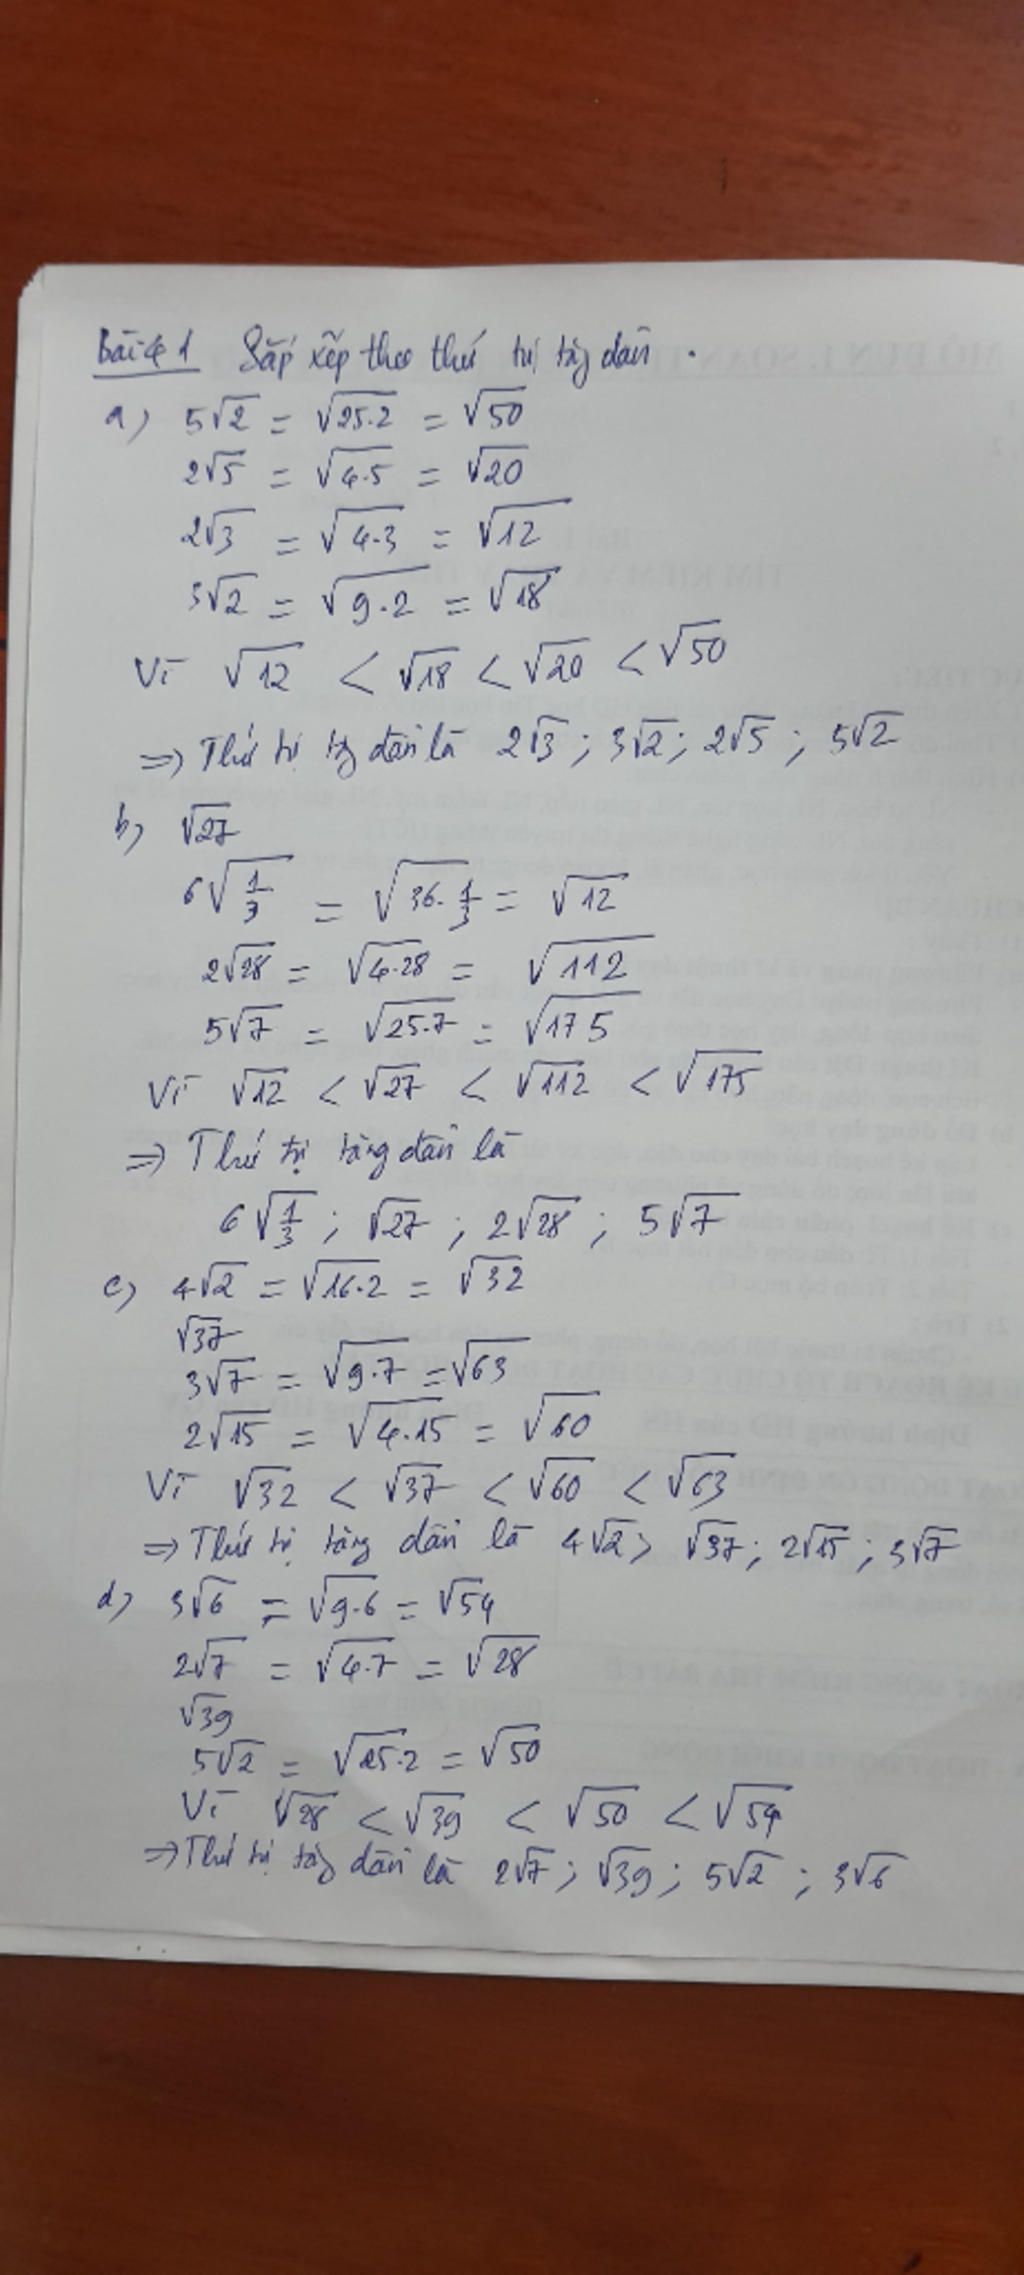 Bài 41 Sắp xếp theo thứ tự tăng dần.
a) 5√2 = √25.2 = √50
2√5 = √4.5 = √20
2√3 = √4.3 = √12
3√2 = √9.2 = √18
Vì √12 < √18 < √20 < √50
=> Thứ tự tăng dần là 2√3 ; 3√2 ; 2√5 ; 5√2
b) √27
6√1/3 = √36.1/3 = √12
2√28 = √4.28 = √112
5√7 = √25.7 = √175
Vì √12 < √27 < √112 < √175
=> Thứ tự tăng dần là
6√1/3 ; √27 ; 2√28 ; 5√7
c) 4√2 = √16.2 = √32
√37
3√7 = √9.7 = √63
2√15 = √4.15 = √60
Vì √32 < √37 < √60 < √63
=> Thứ tự tăng dần là 4√2 ; √37 ; 2√15 ; 3√7
d) 3√6 = √9.6 = √54
2√7 = √4.7 = √28
√39
5√2 = √25.2 = √50
Vì √28 < √39 < √50 < √54
=> Thứ tự tăng dần là 2√7 ; √39 ; 5√2 ; 3√6